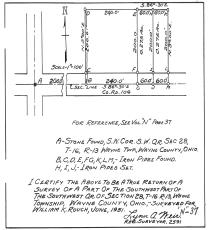 N
S 86°-30'E
240.0'
60.0'
60.0'
D
E
SCALE-1"=100'
A
B
C
F
240.0'
60.0'
60.0'
S 86°-30'E
CO. RD. 104
FOR REFERENCE, SEE VOL. "N" PAGE 37
A-STONE FOUND, S.W. COR. S.W. QR. SEC. 28,
T-16, R-13 WAYNE TWP., WAYNE COUNTY, OHIO.
B,C,D,E,F,G,K,L,M,- IRON PIPES FOUND.
H, I, J,- IRON PIPES SET.
I CERTIFY THE ABOVE TO BE A TRUE RETURN OF A
SURVEY OF A PART OF THE SOUTHWEST PART OF
THE SOUTHWEST QR. OF SECTION 28, T-16, R-13, WAYNE
TOWNSHIP, WAYNE COUNTY, OHIO,- SURVEYED FOR
WILLIAM K. ROUCH, JUNE, 1981.
N-37
REG. SURVEYOR, 2531